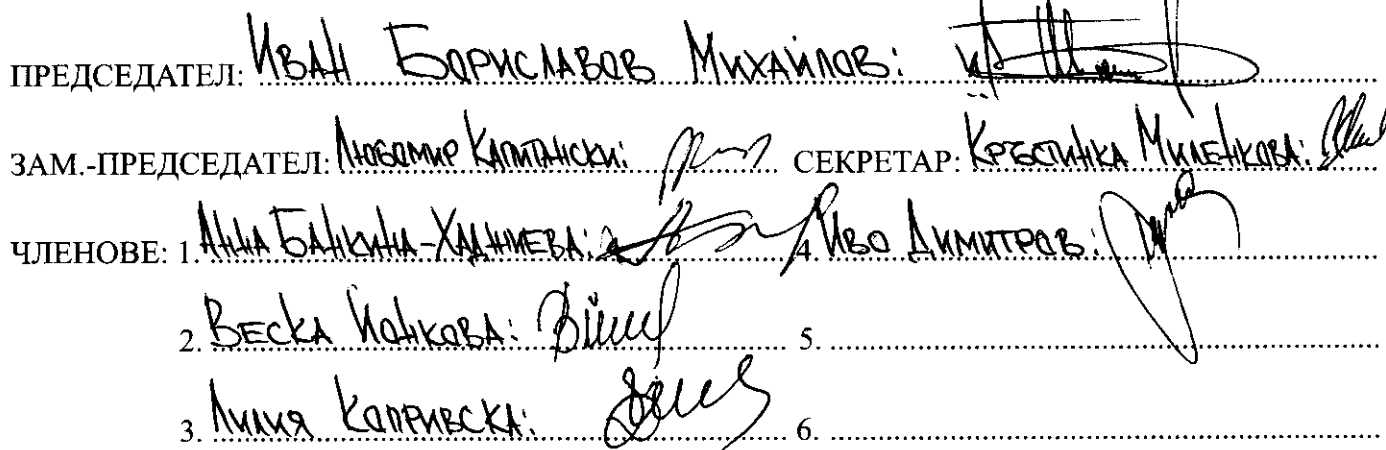 ПРЕДСЕДАТЕЛ: ИВАН БОРИСЛАВОВ МИХАЙЛОВ:
ЗАМ.-ПРЕДСЕДАТЕЛ: ЛЮБОМИР КАПИТАНСКИ: СЕКРЕТАР: КРЪСТИНКА МИЛЕНКОВА:
ЧЛЕНОВЕ: 1. АННА БАНКИНА-ХАДЖИЕВА: 4. ИВО ДИМИТРОВ:
2. ВЕСКА ЙОНКОВА: 5.
3. ЛИЛИЯ КОПРИВСКА: 6.